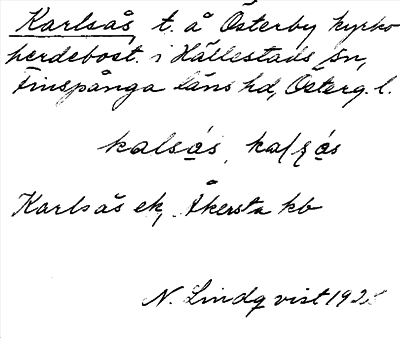 Karlsås t. å Österby kyrko
herdebost. i Hällestads sn,
Finspånga läns hd, Österg. l.
kalsås,
Karlsås ek, Åkersta kb
N. Lindqvist 192